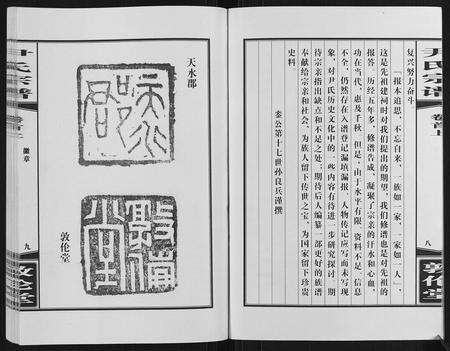 尹氏宗谱
卷首上
八
敦伦堂
复兴努力奋斗
“报本追思，不忘自来，一族如一家，一家如一人”，
这是先祖建祠时对我们提出的期望，我们修谱也是对先祖的
报答。历经五年多，修谱告成，凝聚了宗亲的汗水和心血，
功在当代，惠及千秋。但是，由于水平有限，资料不足，信息
不全，仍然存在入谱登记漏填漏报、人物传记应写而未写现
象，对尹氏历史文化中的一些内容有待进一步研究探讨，期
待宗亲指出缺点和不足之处；期待后人编纂一部更好的族谱
奉献给宗亲和社会，为族人留下传世之宝，为国家留下珍贵
史料。
公第十七世孙良兵谨撰
天水郡
敦伦堂
尹氏宗谱
卷首上
徽章
九
敦伦堂